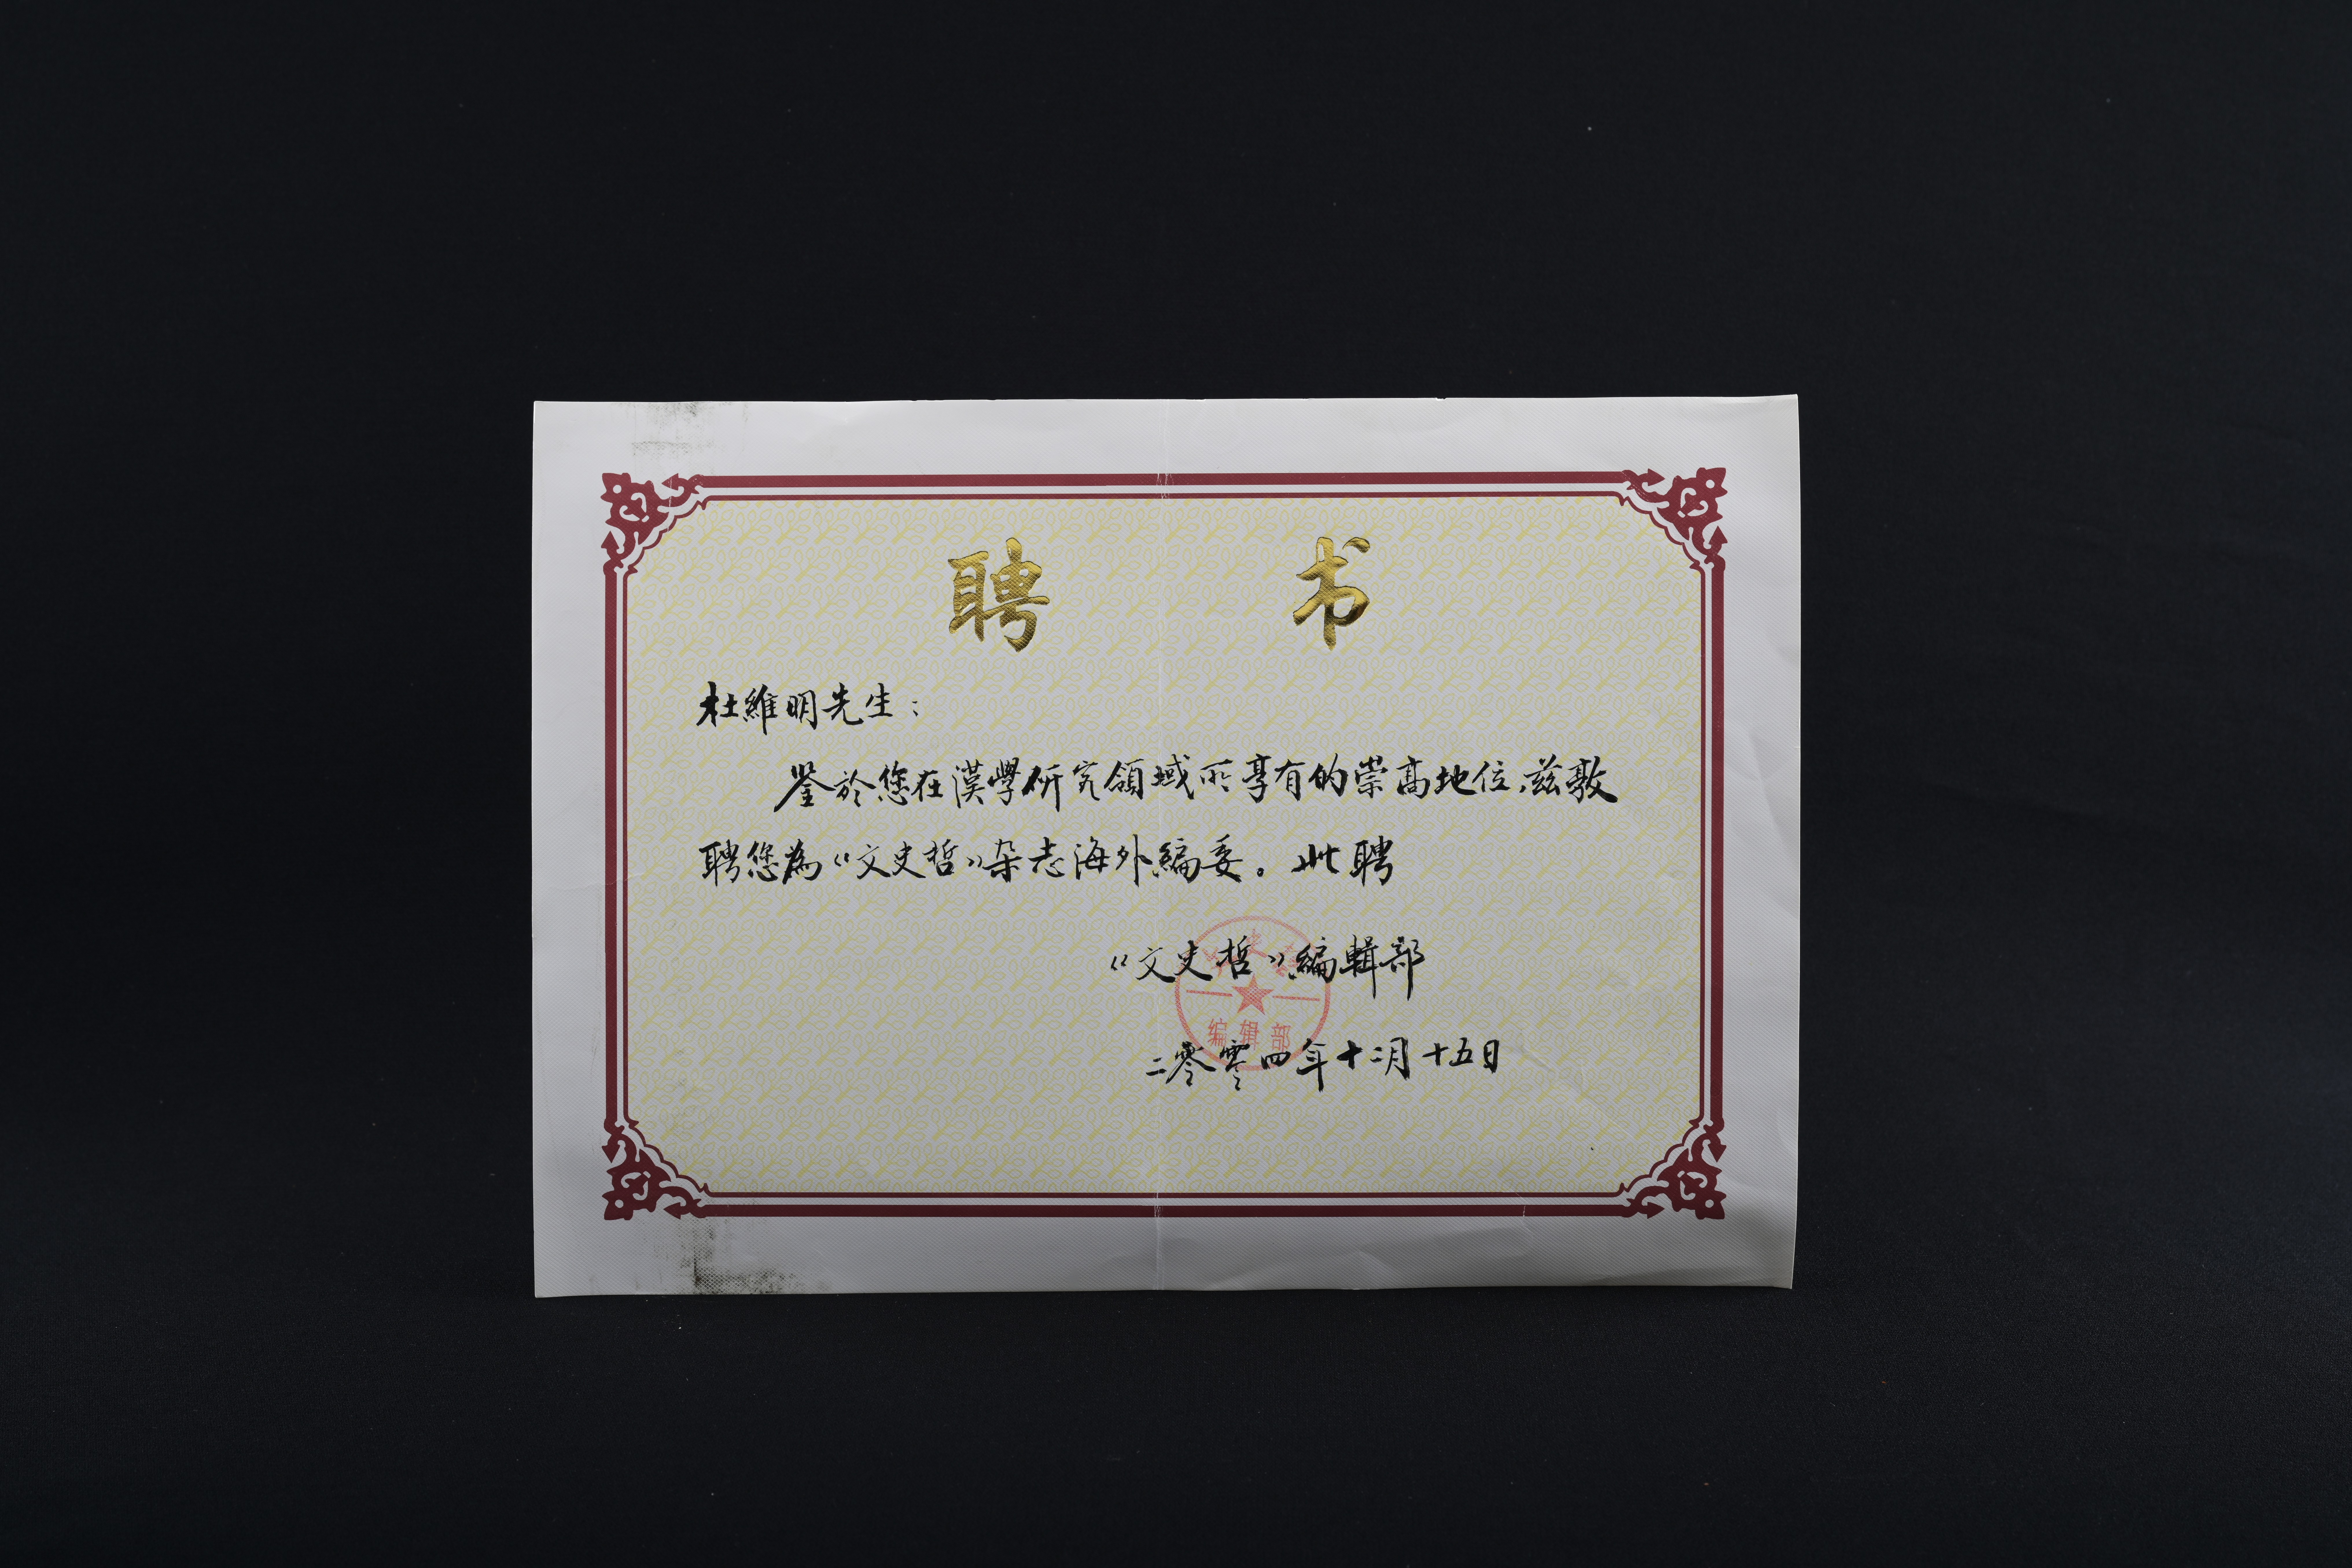 聘书
杜維明先生：
鉴於您在漢學研究領域所享有的崇高地位，兹敦
聘您為《文史哲》杂志海外編委。此聘
《文史哲》編輯部
编辑部
二零零四年十二月十五日